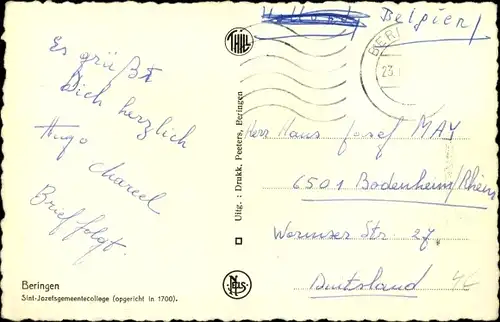 Es grüßt
Dich herzlich
Hugo Marcel
Brief folgt.
Beringen
Sint-Jozefsgemeentecollege (opgericht in 1700).
THILL
Uitg. : Drukk. Peeters, Beringen
NELS
Belgien
BERI
23.
Herr Hans Josef MAY
6501 Bodenheim/Rhein
Wormser Str. 27
Duitsland